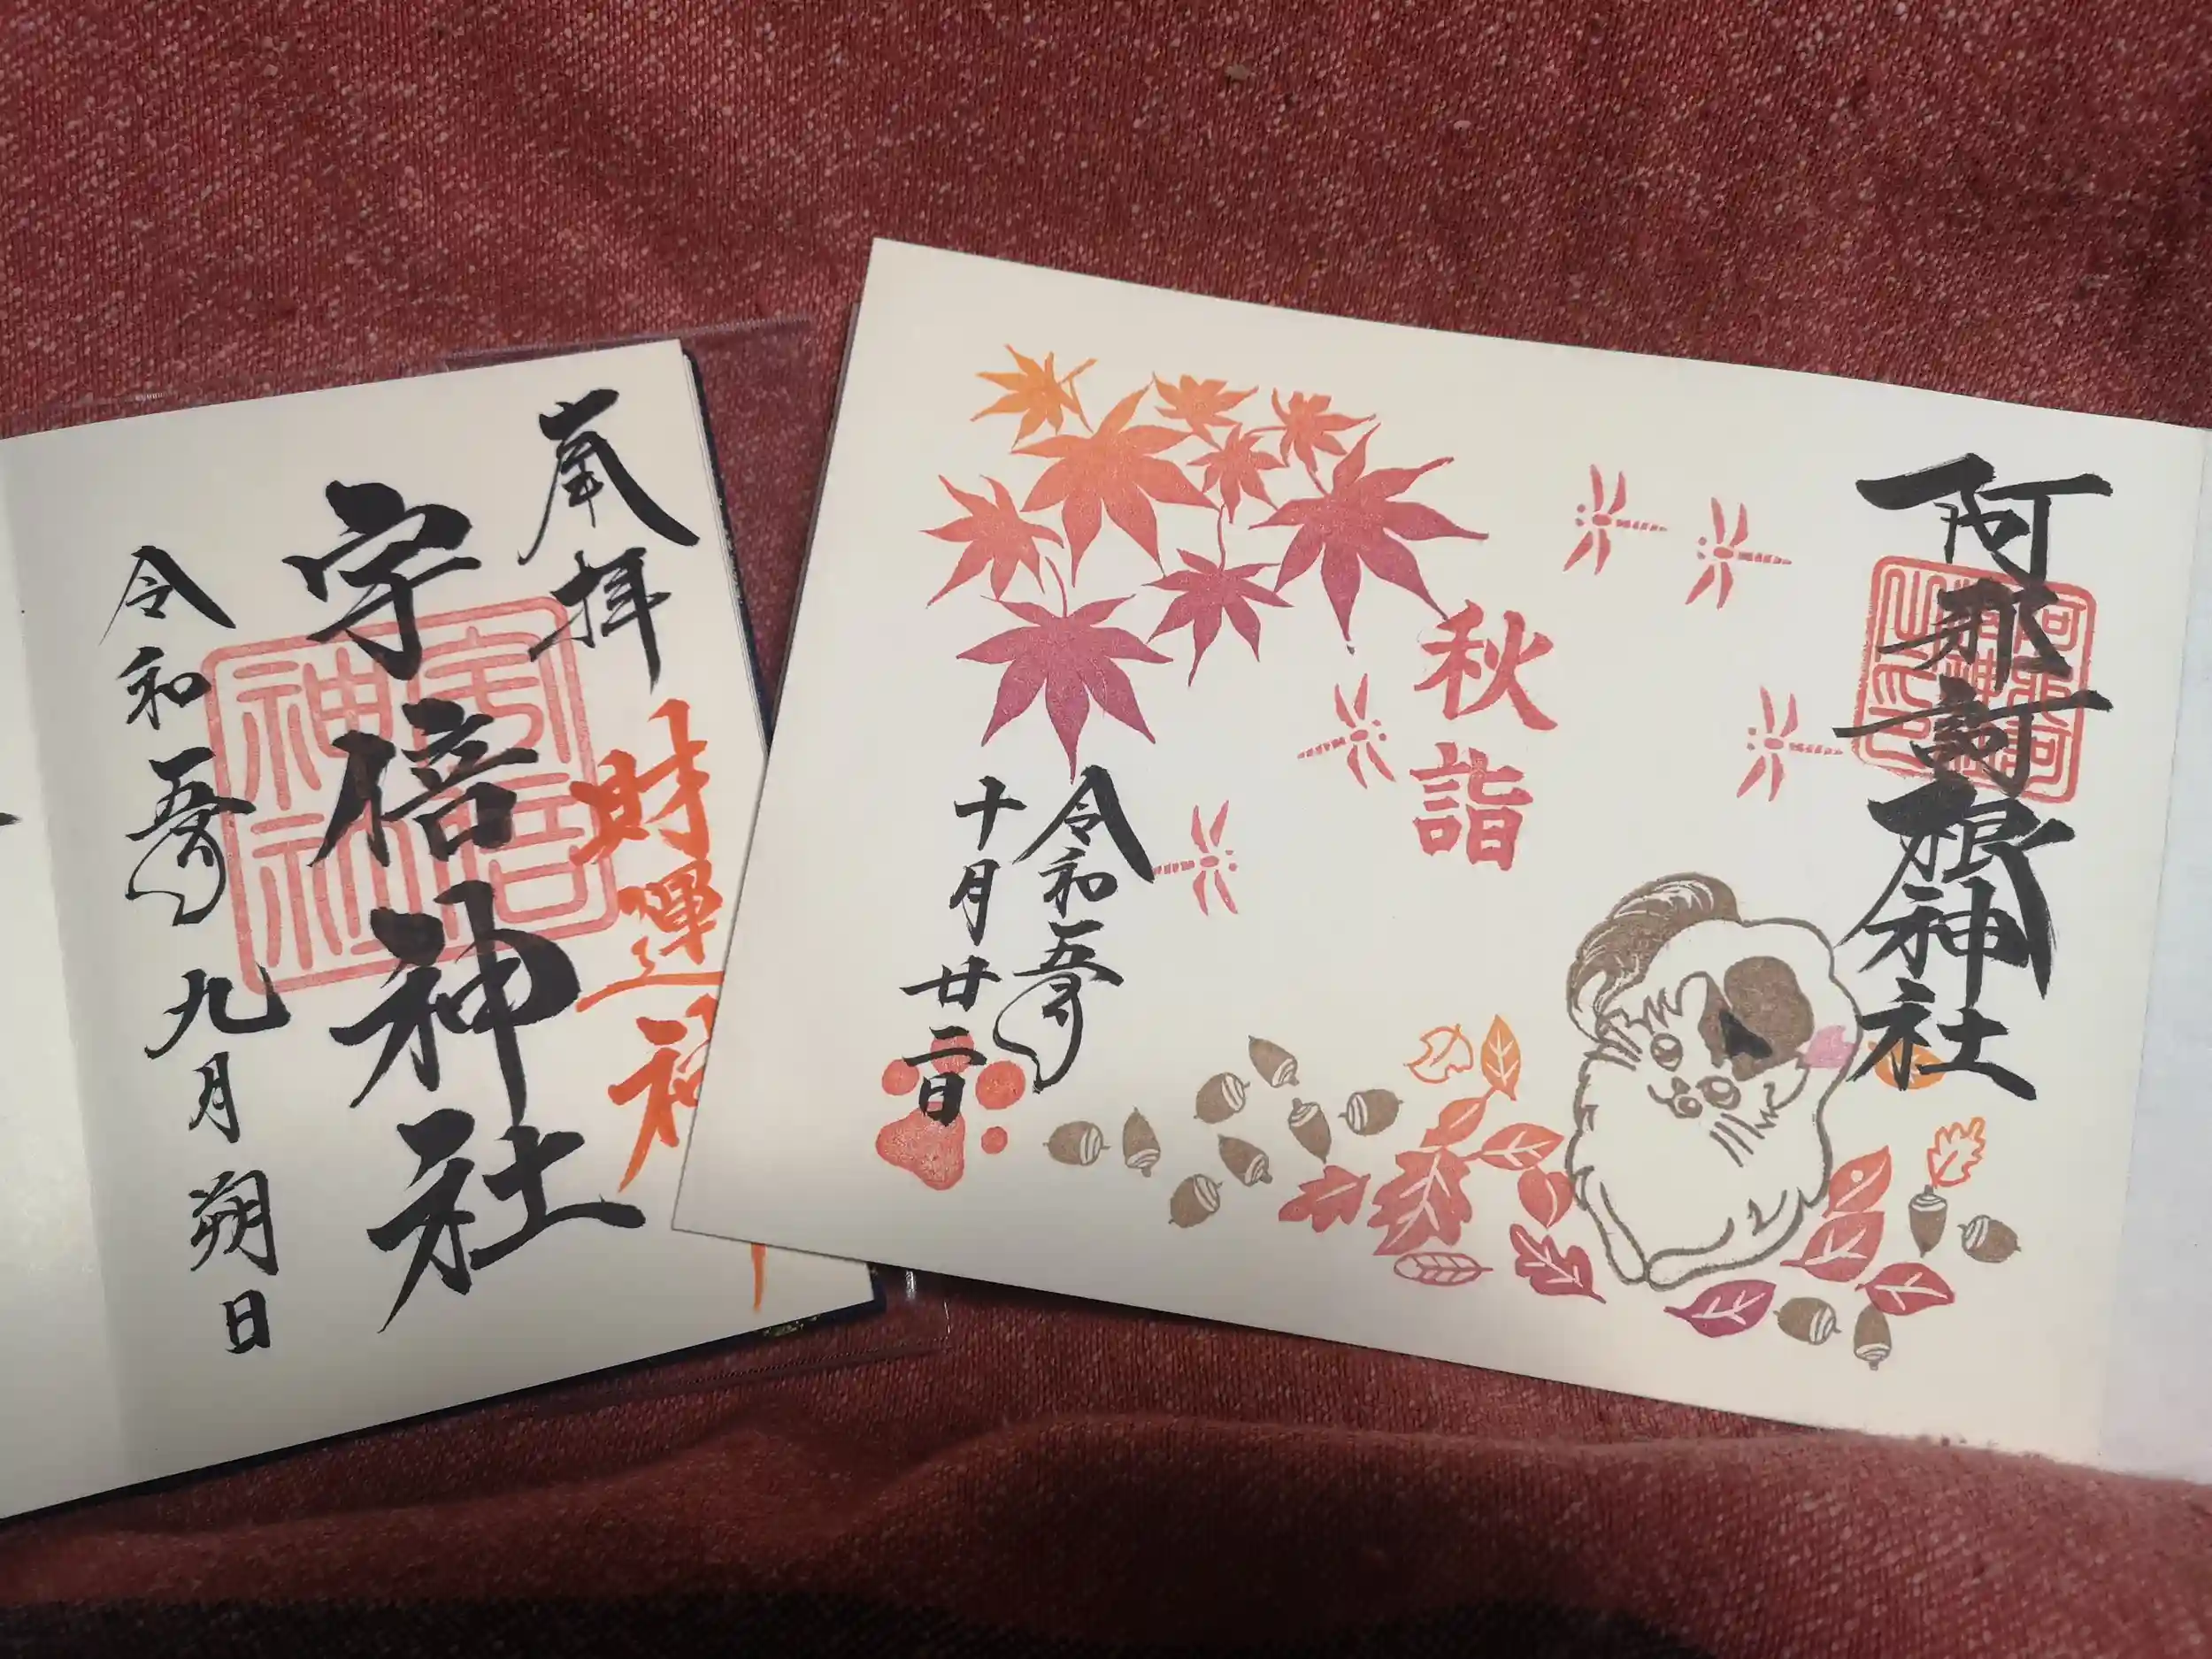 奉拝
財運
宇倍神社
宇倍神社
令和五年
九月朔日
阿那訶根神社
秋詣
令和五年
十月廿二日